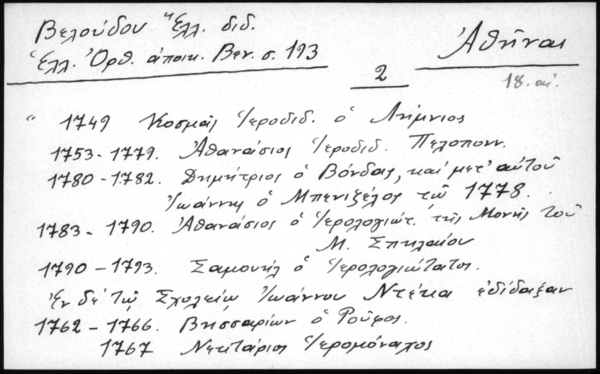 Βελούδου Ἑλλ. διδ.
Ἑλλ. Ὀρθ. ἀποικ. Βεν. σ. 193
Ἀθῆναι
2
18. αἰ.
" 1749 Κοσμᾶς Ἱεροδιδ. ὁ Λήμνιος
1753-1779. Ἀθανάσιος Ἱεροδιδ. Πελοπονν.
1780-1782. Δημήτριος ὁ Βόνδας, καὶ μετ' αὐτοῦ
Ἰωάννης ὁ Μπενιζέλος τῷ 1778.
1783-1790. Ἀθανάσιος ὁ Ἱερολογιώτ. τῆς Μονῆς τοῦ
Μ. Σπηλαίου
1790-1793. Σαμουὴλ ὁ Ἱερολογιώτατος.
Ἐν δὲ τῷ Σχολείῳ Ἰωάννου Ντέκα ἐδίδαξαν
1762-1766. Βησσαρίων ὁ Ροῦφος.
1767 Νεκτάριος Ἱερομόναχος